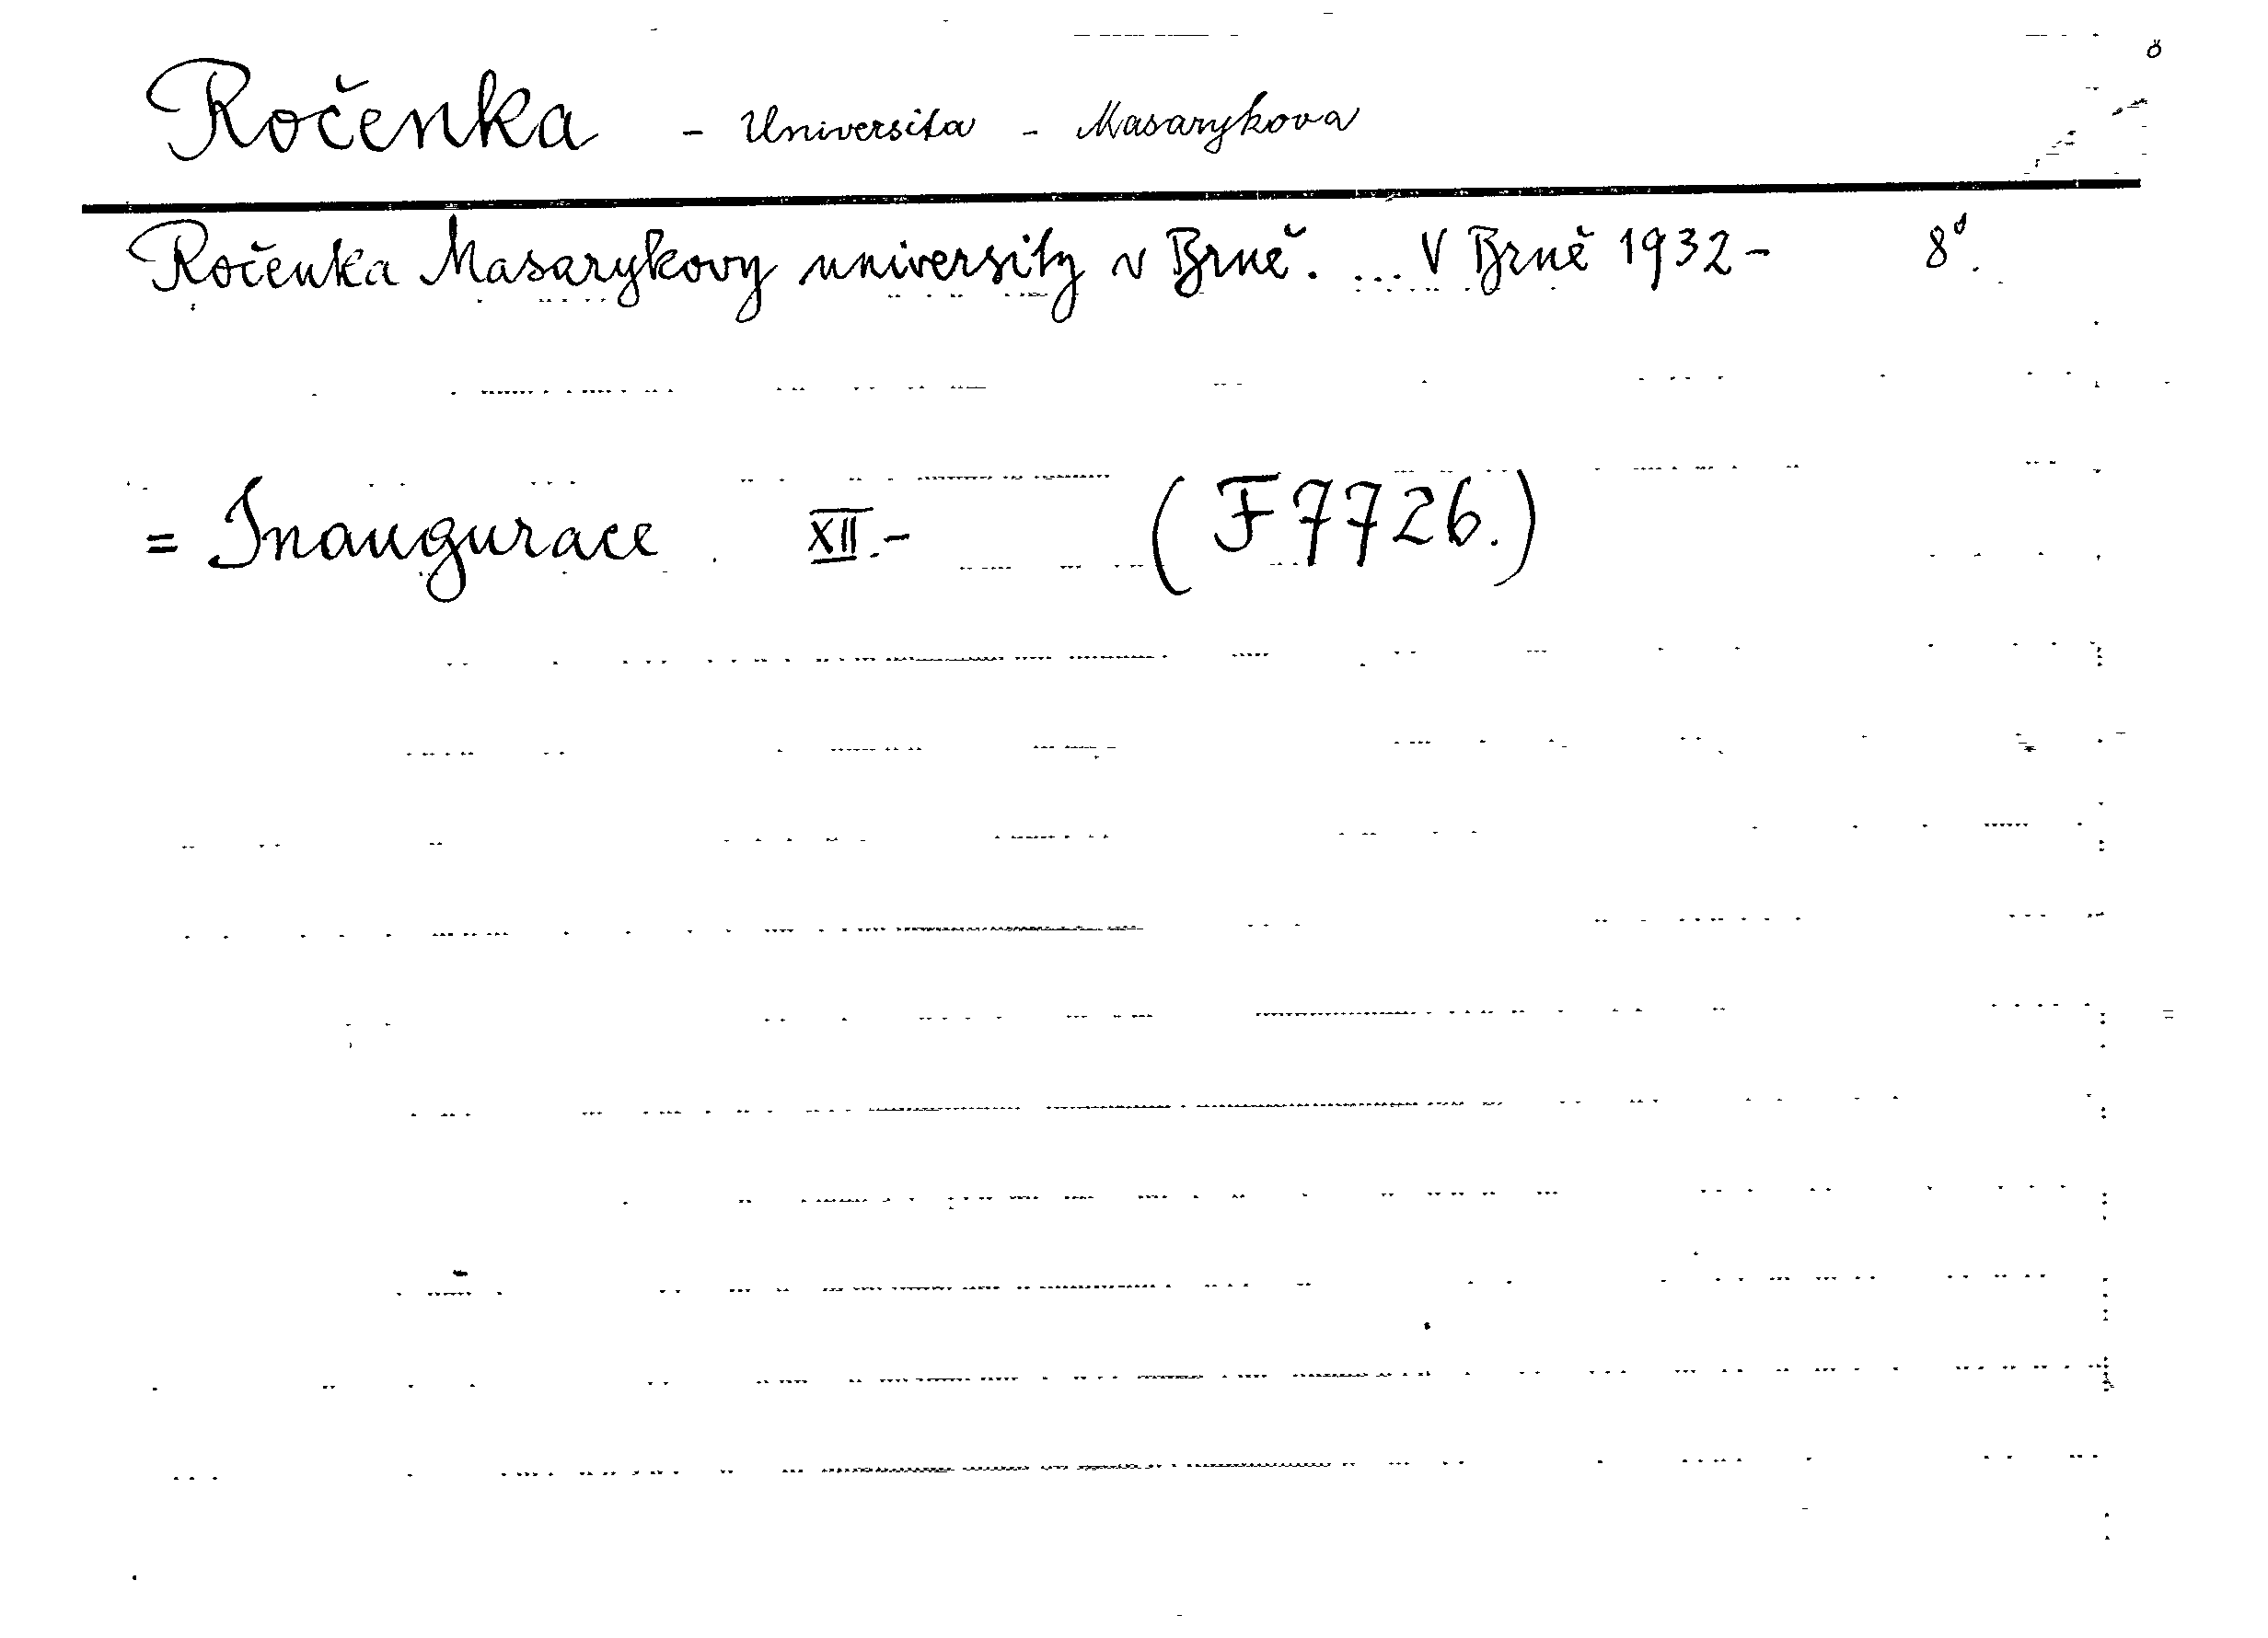 Ročenka - Universita - Masarykova
Ročenka Masarykovy university v Brně. ... V Brně 1932 - 8°.
= Inaugurace XII.- (F 7726.)